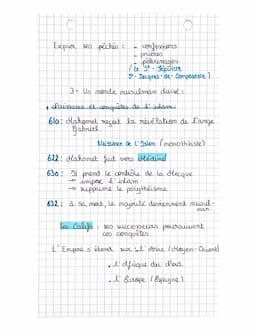 Expier ses péchés : - confessions
- prières
- pèlerinages
( le St - Sépulcre
St - Jacques - de - Compostelle )
3 - Un monde musulman divisé :
Naissance et conquêtes de l'islam
610 : Mahomet reçoit la révélation de l'ange
Gabriel
Naissance de l'Islam (monothéiste)
622 : Mahomet fuit vers Médine
630 : Il prend le contrôle de la Mecque
→ impose l'islam
→ supprime le polythéisme
632 : à sa mort, la majorité deviennent musul-
man.
Les Califes : ses successeurs poursuivent
ses conquêtes.
L'Empire s'étend sur : . l'Asie (Moyen-Orient)
. l'Afrique du Nord
. l'Europe (Espagne)